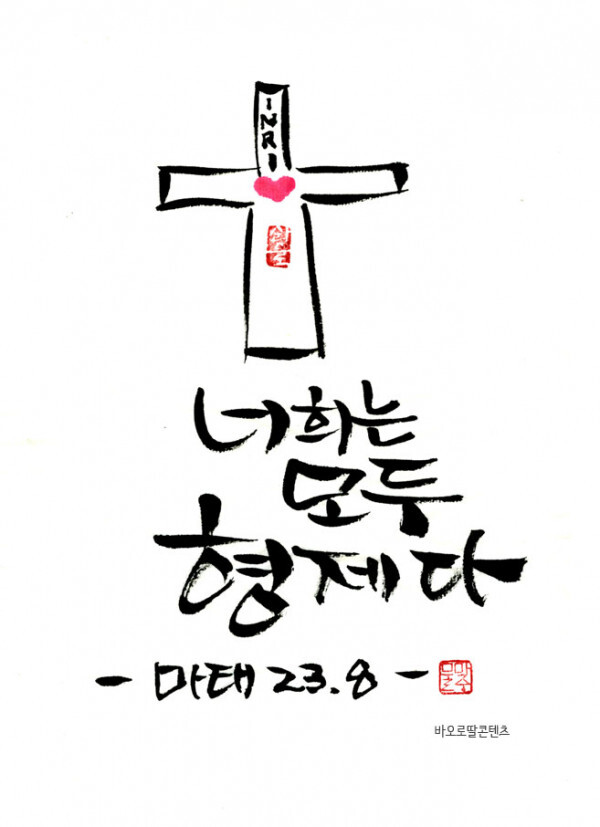 INRI
너희는
모두
형제다
- 마태 23.8 -
바오로딸콘텐츠